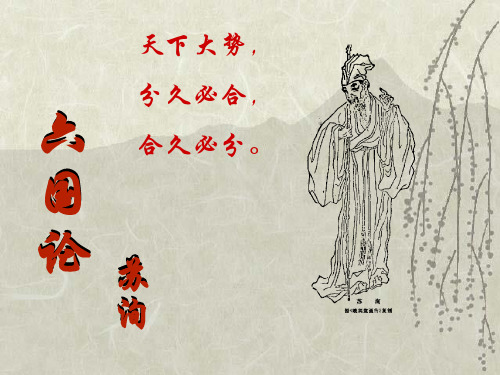 天下大势，
分久必合，
合久必分。
六国论
苏洵
苏洵